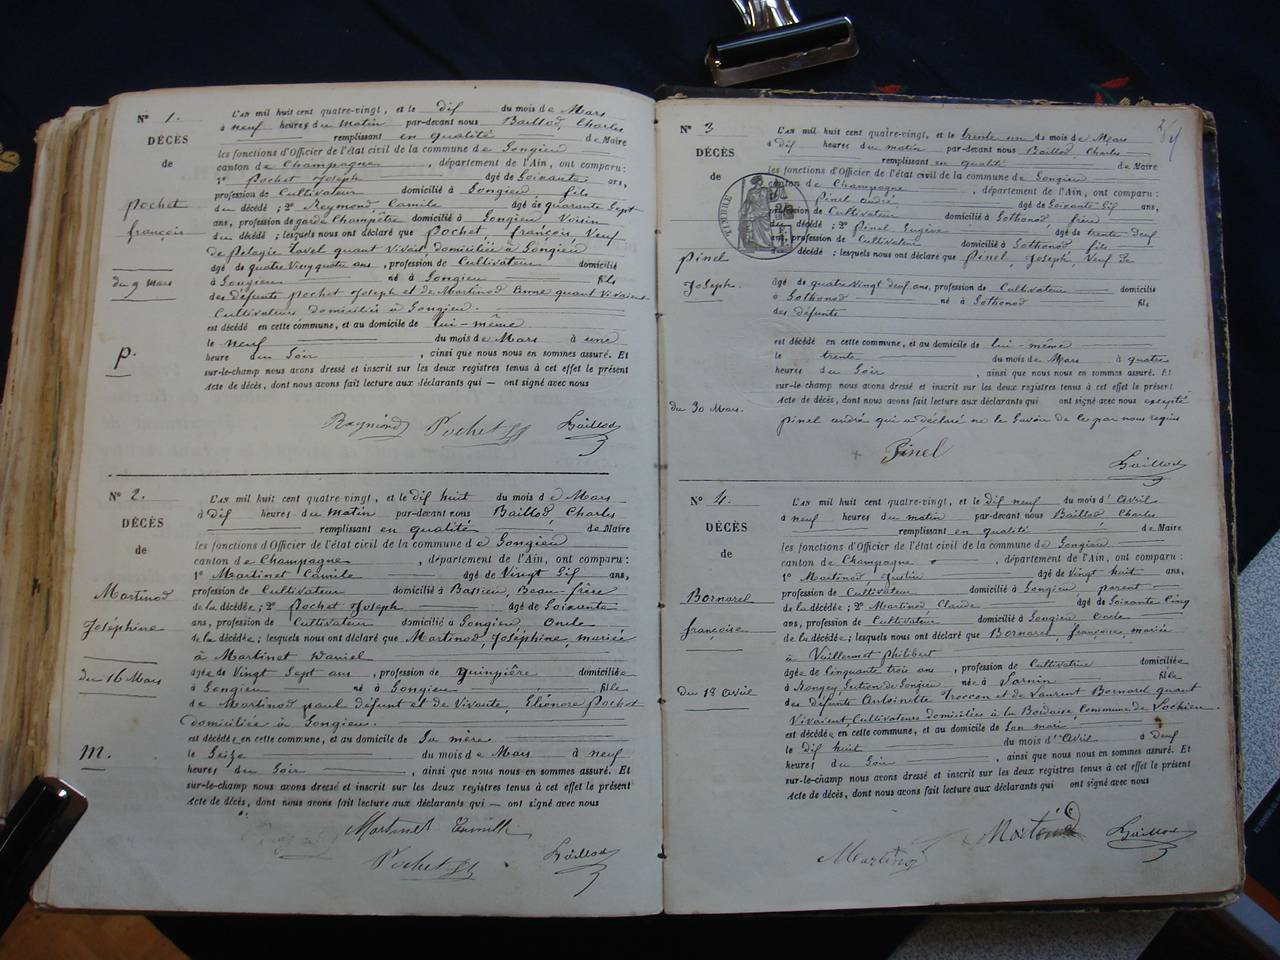 N° 1.
DÉCÈS
de
Pochet
françois
du 9 mars
P.
L'AN mil huit cent quatre-vingt, et le dix du mois de Mars
à neuf heures du matin par-devant nous Baillod, Charles
remplissant en qualité de Maire
les fonctions d'Officier de l'état civil de la commune de Songieu
canton de Champagne, département de l'Ain, ont comparu :
1° Pochet Joseph âgé de Soixante ans,
profession de Cultivateur domicilié à Songieu, fils
du décédé ; 2° Reymond Camile âgé de quarante Sept
ans, profession de garde Champêtre domicilié à Songieu Voisin
du décédé ; lesquels nous ont déclaré que Pochet, françois, Veuf
de Pelagie Tavel quant Vivait, domiciliée à Songieu
âgé de quatre Vingt quatre ans, profession de Cultivateur domicilié
à Songieu né à Songieu fils
des défunts Pochet Joseph et de Martinod Anne quant Vivaient
Cultivateurs domiciliés à Songieu.
est décédé en cette commune, et au domicile de lui-même
le neuf du mois de Mars à une
heure du Soir, ainsi que nous nous en sommes assuré. Et
sur-le-champ nous avons dressé et inscrit sur les deux registres tenus à cet effet le présent
acte de décès, dont nous avons fait lecture aux déclarants qui — ont signé avec nous
Reymond Pochet Baillod
N° 2.
DÉCÈS
de
Martinod
Joséphine
du 16 Mars
M.
L'AN mil huit cent quatre-vingt, et le dix huit du mois de Mars
à dix heures du matin par-devant nous Baillod, Charles
remplissant en qualité de Maire
les fonctions d'Officier de l'état civil de la commune de Songieu
canton de Champagne, département de l'Ain, ont comparu :
1° Martinet Camile âgé de Vingt Six ans,
profession de Cultivateur domicilié à Bassieu, Beau-frère
de la décédée ; 2° Pochet Joseph âgé de Soixante
ans, profession de Cultivateur domicilié à Songieu, Oncle
de la décédée ; lesquels nous ont déclaré que Martinod, Joséphine, mariée
à Martinet Daniel
âgée de Vingt Sept ans, profession de domiciliée
à Songieu née à Songieu fille
de Martinod paul défunt et de Vivante, Eléonore Pochet
domiciliée à Songieu.
est décédée en cette commune, et au domicile de Sa mère
le Seize du mois de Mars à neuf
heures du Soir, ainsi que nous nous en sommes assuré. Et
sur-le-champ nous avons dressé et inscrit sur les deux registres tenus à cet effet le présent
acte de décès, dont nous avons fait lecture aux déclarants qui — ont signé avec nous
Martinet Camille
Pochet Baillod
N° 3
DÉCÈS
de
Pinel
Joseph.
du 30 Mars.
TIMBRE
L'AN mil huit cent quatre-vingt, et le trente un du mois de Mars
à dix heures du matin par-devant nous Baillod, Charles
remplissant en qualité de Maire
les fonctions d'Officier de l'état civil de la commune de Songieu
canton de Champagne, département de l'Ain, ont comparu :
1° Pinel andré, âgé de Soixante Six ans,
profession de Cultivateur domicilié à Sothonod, frère
du décédé ; 2° Pinel Eugène âgé de trente neuf
ans, profession de Cultivateur domicilié à Sothonod fils
du décédé ; lesquels nous ont déclaré que Pinel, Joseph, Veuf de
âgé de quatre vingt deux ans, profession de Cultivateur domicilié
à Sothonod né à Sothonod fils
des défunts
est décédé en cette commune, et au domicile de lui-même
le trente du mois de Mars à quatre
heures du Soir, ainsi que nous nous en sommes assuré. Et
sur-le-champ nous avons dressé et inscrit sur les deux registres tenus à cet effet le présent
acte de décès, dont nous avons fait lecture aux déclarants qui ont signé avec nous excepté
pinel andré qui a déclaré ne le Savoir de ce par nous requis
Pinel
Baillod
N° 4.
DÉCÈS
de
Bornarel
françoise
Du 18 avril
L'AN mil huit cent quatre-vingt, et le dix neuf du mois d'Avril
à neuf heures du matin par-devant nous Baillod, Charles
remplissant en qualité de Maire
les fonctions d'Officier de l'état civil de la commune de Songieu
canton de Champagne, département de l'Ain, ont comparu :
1° Martinod, Justin âgé de Vingt huit ans,
profession de Cultivateur domicilié à Songieu, parent
de la décédée ; 2° Martinod, Claude âgé de Soixante Cinq
ans, profession de Cultivateur domicilié à Songieu Oncle
de la décédée ; lesquels nous ont déclaré que Bornarel, françoise, mariée
à Vuillermet philibert
âgée de Cinquante trois ans, profession de Cultivatrice domiciliée
à Rongey, Section de Songieu, née à fille
des défunts Antoinette Troccon et de Laurent Bornarel quant
Vivaient Cultivateurs domiciliés à la Commune de Lochieu.
est décédée en cette commune, et au domicile de Son mari
le dix huit du mois d'Avril à Deux
heures du Soir, ainsi que nous nous en sommes assuré. Et
sur-le-champ nous avons dressé et inscrit sur les deux registres tenus à cet effet le présent
acte de décès, dont nous avons fait lecture aux déclarants qui ont signé avec nous
Martinod Martinod Baillod